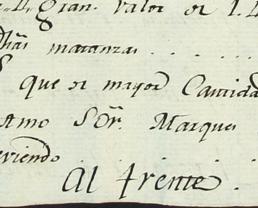 gran. valor de
matanzas . . . .
que es mayor Cantida
Amo Sōr. Marques
eviendo
Al frente